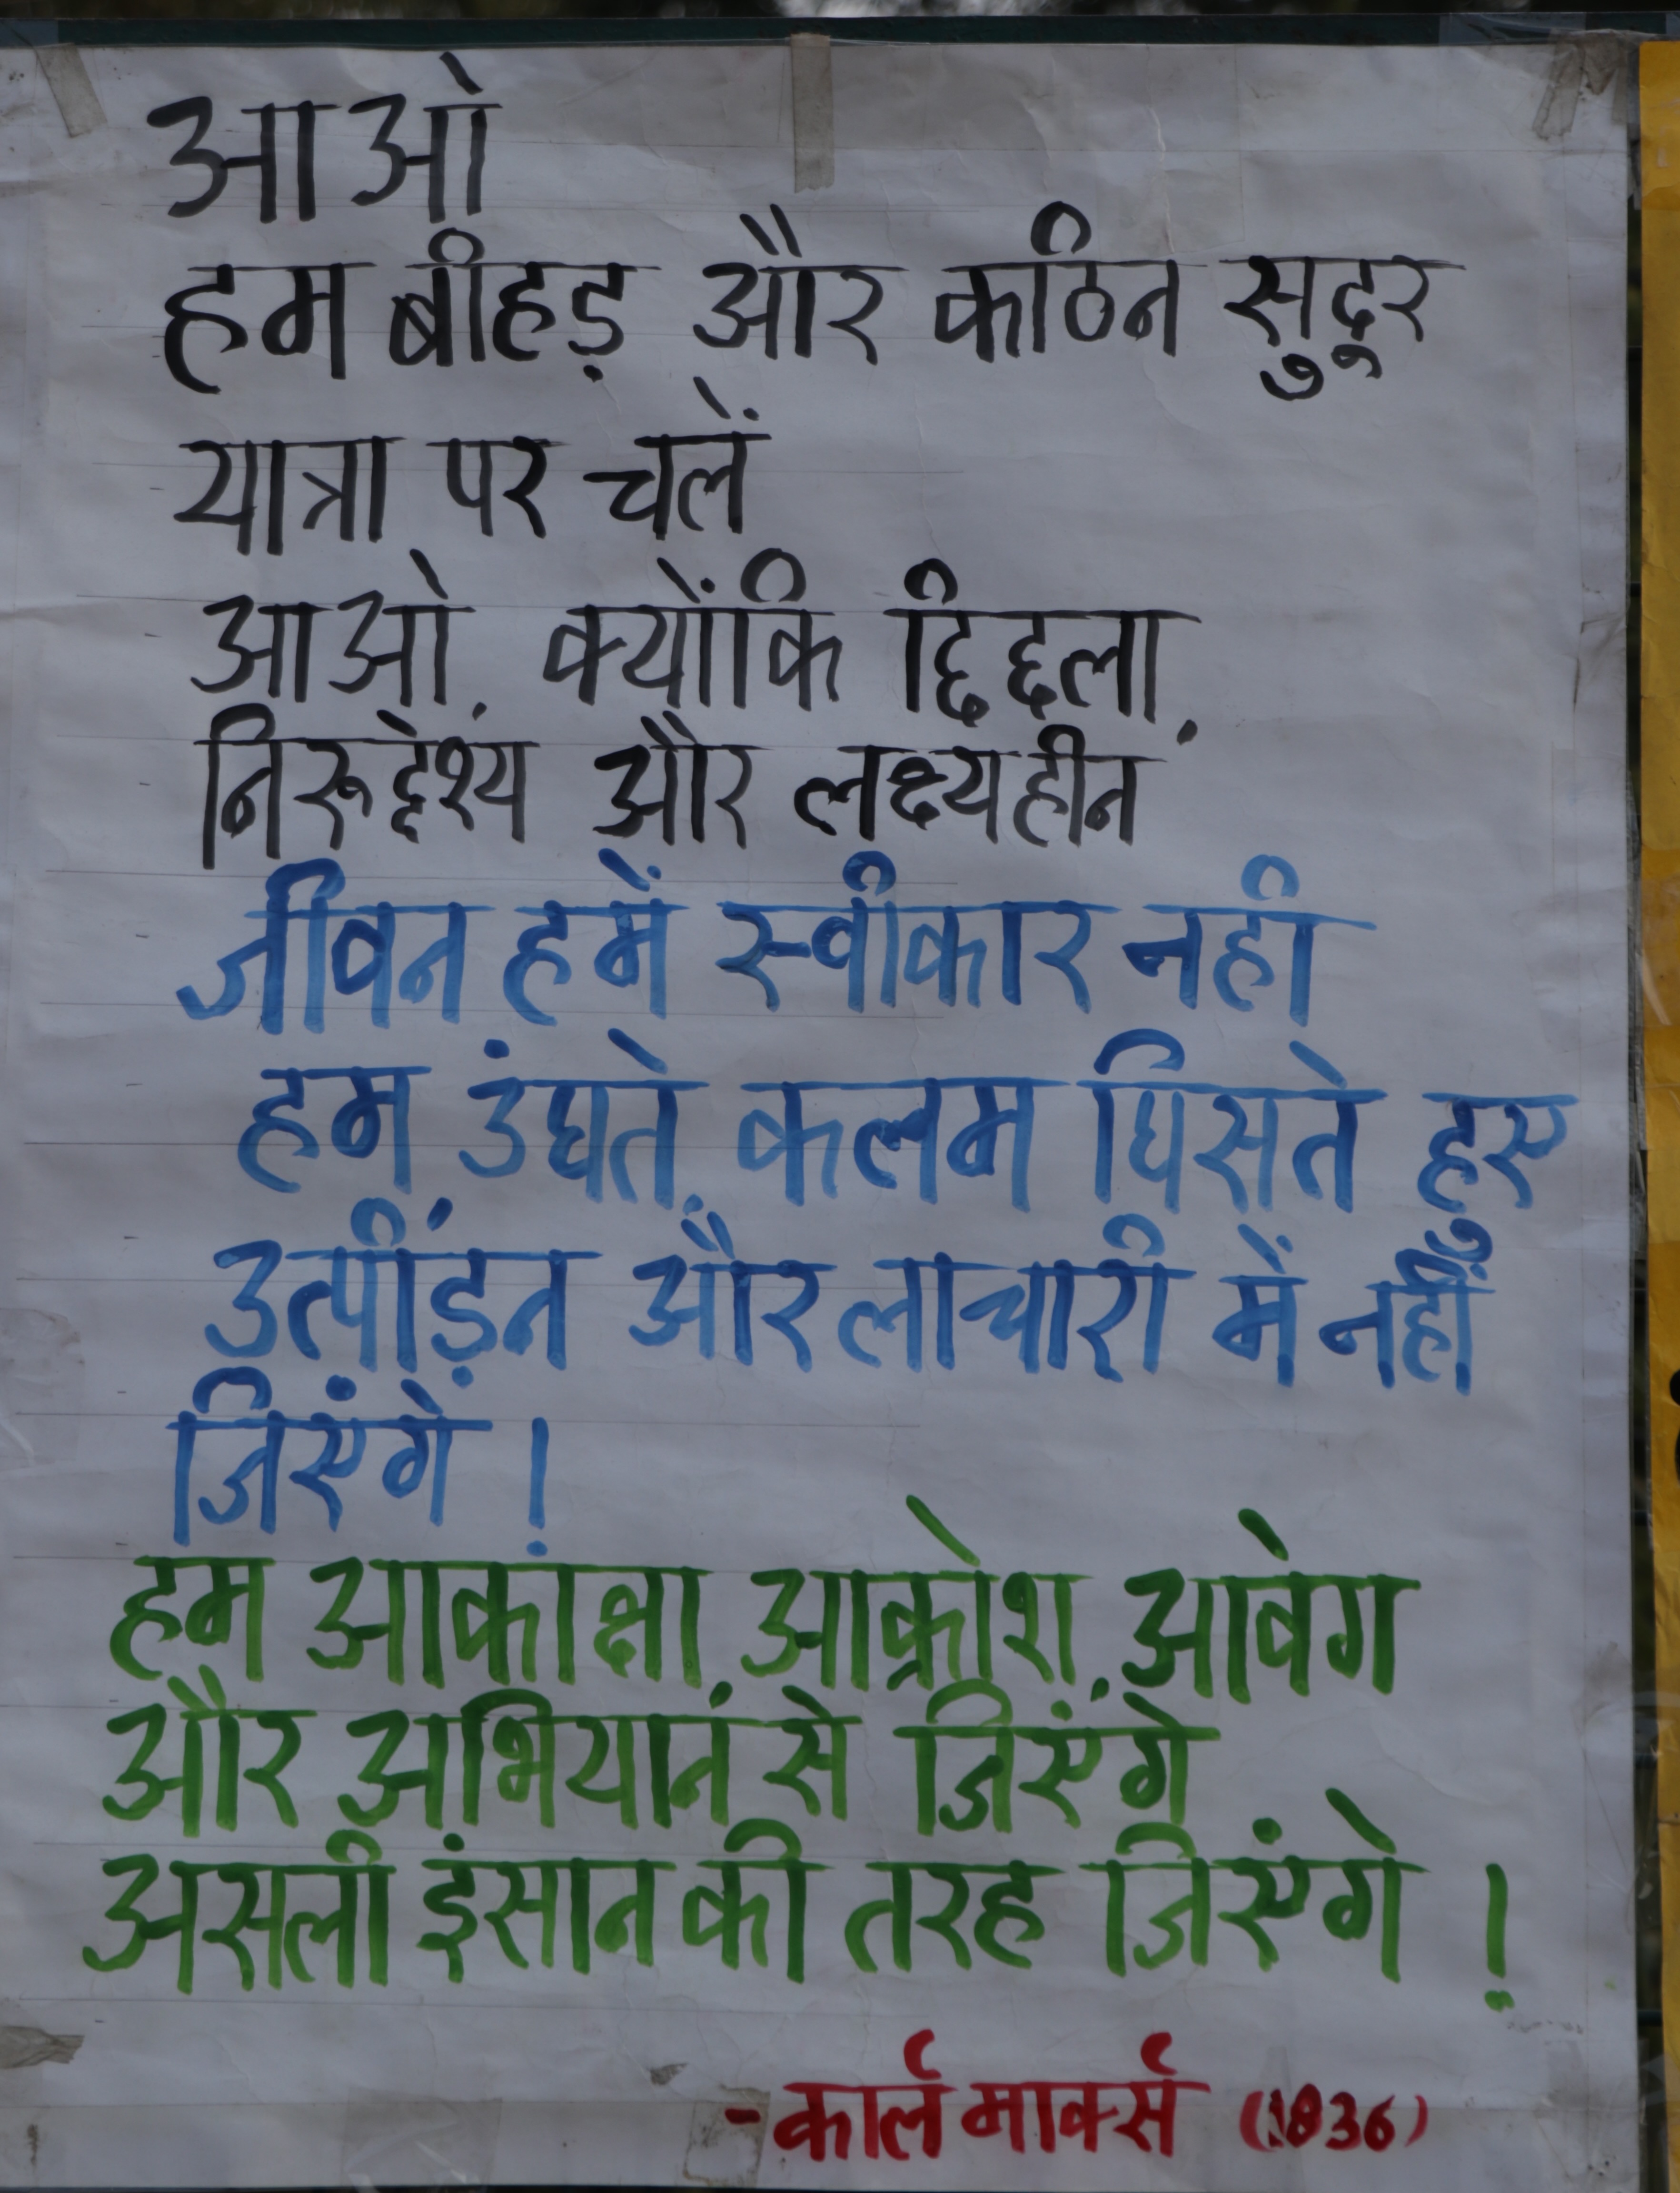 आओ
हम बीहड़ और कठिन सुदूर
यात्रा पर चलें
आओ, क्योंकि छिछला,
निरूद्देश्य और लक्ष्यहीन
जीवन हमें स्वीकार नही
हम उंघते, कलम घिसते हुए
उत्पीड़न और लाचारी में नहीं
जिएंगे !
हम आकांक्षा, आक्रोश, आवेग
और अभियान से जिएंगे
असली इंसान की तरह जिएंगे !
-कार्ल मार्क्स (1836)